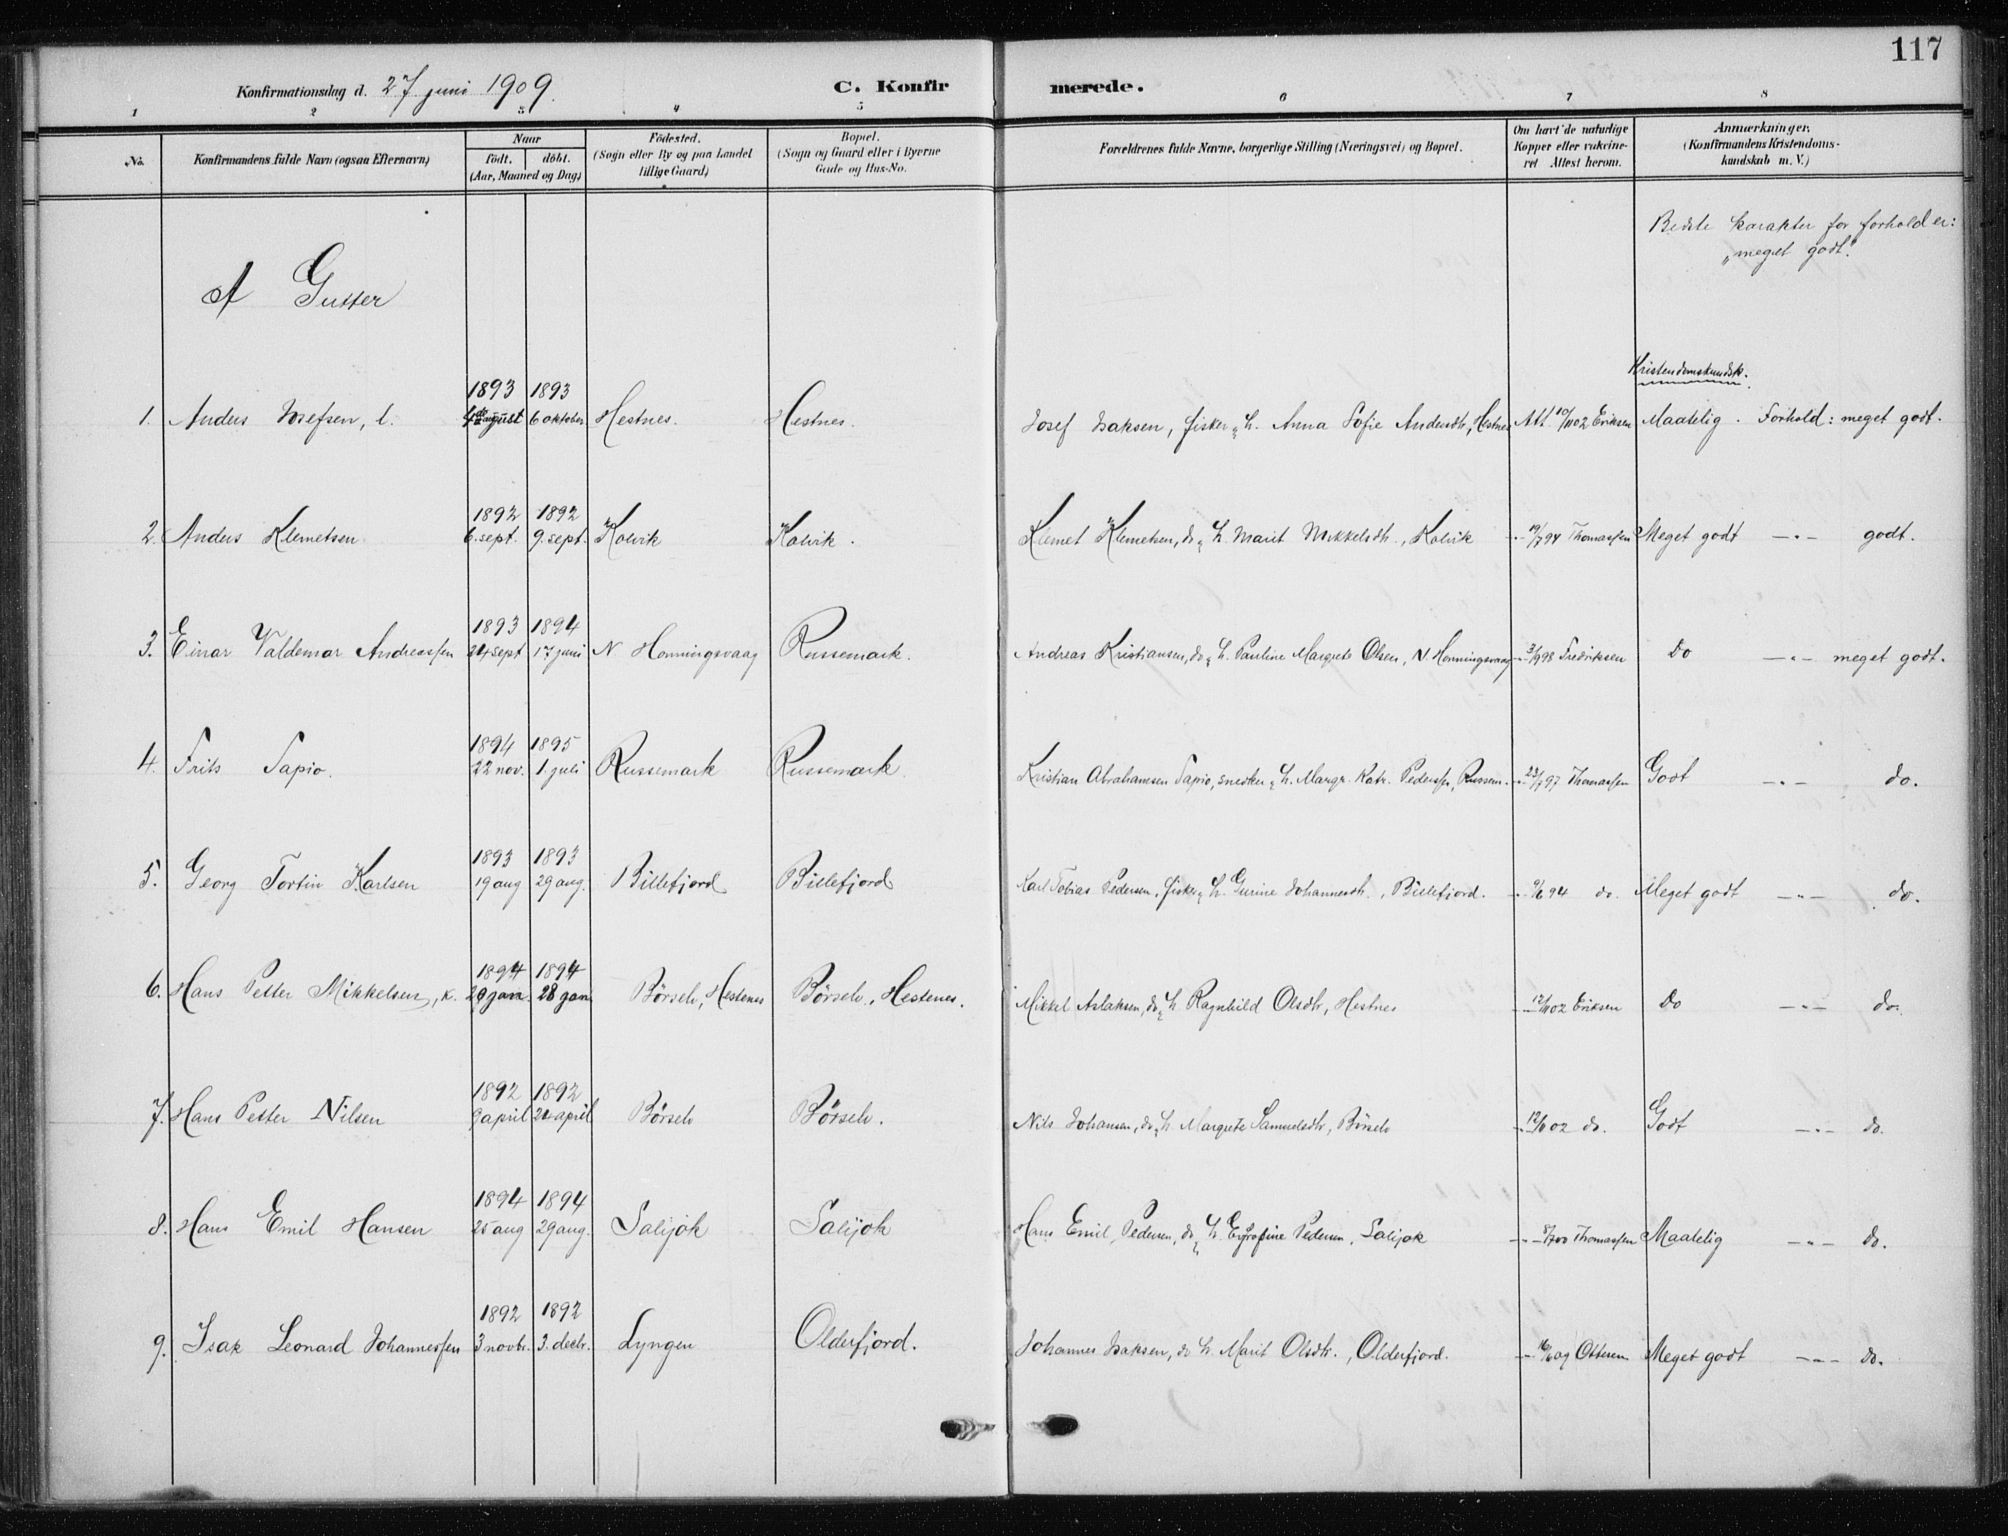 117
Konfirmationsdag d. 27. juni 1909. C. Konfirmerede.
1 2 3 4 5 6 7 8
No. Konfirmandens fulde Navn (ogsaa Efternavn) Naar født. døbt. (Aar, Maaned og Dag) Fødested. (Sogn eller By og paa Landet tillige Gaard) Bopæl. (Sogn og Gaard eller i Byerne Gade og Hus-No. Forældrenes fulde Navne, borgerlige Stilling (Næringsvei) og Bopæl. Om havt de naturlige Kopper eller vakcineret Attest herom. Anmærkninger. (Konfirmandens Kristendomskundskab m. V.)
Bedste karakter for forhold er: "meget godt."
A Gutter
Kristendomskundsk.
1893 1893
1. Anders Josefsen, l. august 6 oktober Hestnes. Hestnes. Josef Isaksen, fisker, h. Anna Sofie Andersdtr, Hestnes Att. 10/11 02 Eriksen Maadelig. Forhold: meget godt.
1892 1892
2. Anders Klemetsen 6. sept. 9. sept. Kolvik Kolvik. Klemet Klemetsen, do, h. Marit Mikkelsdtr., Kolvik -"- 19/7 94 Thomassen Meget godt -"- godt.
1893 1894
3. Einar Valdemar Andreassen 24 sept 17 juni N Honningsvaag Russemark. Andreas Kristiansen, do, h. Pauline Margrete Olsen, N. Honningsvaag -"- 3/9 98 Fredriksen Do -"- meget godt.
1894 1895
4. Frits Tapio. 22 nov. 1. juli Russemark Russemark. Kristian Abrahamsen Tapio, snedker, h. Margr. Katr. Pedersen, Russem. -"- 23/7 97 Thomassen Godt -"- do.
1893 1893
5. Georg Tortin Karlsen 19 aug 29 aug. Billefjord Billefjord Karl Tobias Pedersen, fisker, h. Gurine Johannesdtr., Billefjord. -"- /6 94 do. Meget godt -"- do.
1894 1894
6. Hans Petter Mikkelsen, k. jan 28 jan Børselv, Hestenes Børselv, Hestenes. Mikkel Aslaksen, do, h. Ragnhild Olsdtr, Hestnes -"- 12/11 02 Eriksen Do -"- do.
1892 1892
7. Hans Petter Nilsen 9 april 24 april Børselv Børselv. Nils Johansen, do, h. Margrete Samuelsdtr, Børselv -"- 12/11 02 do. Godt -"- do.
1894 1894
8. Hans Emil Hansen 25 aug 29 aug. Salijok Salijok Hans Emil Pedersen, do, h. Pedersen, Salijok -"- 8/7 00 Thomassen Maadelig -"- do.
1892 1892
9. Isak Leonard Johannessen 3 novbr. 3. decbr. Lyngen Olderfjord. Johannes Isaksen, do h. Marit Olsdtr., Olderfjord. -"- 16/6 09 Ottesen Meget godt -"- do.